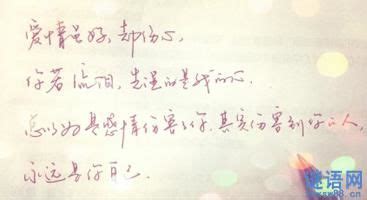 爱情虽好,却伤心,
你若流泪,先湿的是我的心.
总以为是感情伤害了你,其实伤害到你的人,
永远是你自己.
谜语网
www.sw88.cn